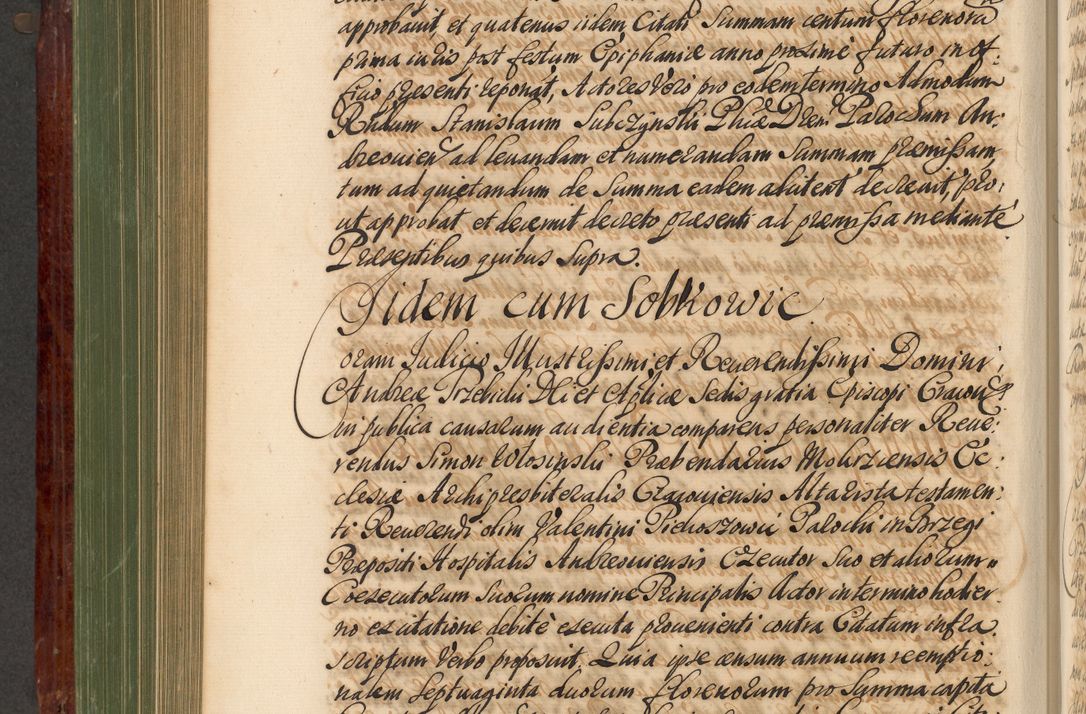 approbavit, et quatenus iidem Citati Summam centum florenorũ
prima iuris post festum Epiphaniæ anno proximè futuro in of-
ficio præsenti reponāt, Actores verò pro eodem termino Admodum
Rñdum Stanislaum Subczynski Phiæ Drem Paroch̃um An-
dreouien̄ ad levandam et numerandam Summam præmissam
tum ad quietandum de Summa eadem abutent decrevit, pro-
ut approbat et decernit decreto præsenti ad præmissa mediante
Præsentibus quibus Supra.
Iidem cum Sobkowic
Coram Iudicio Illustrissimi et Reverendissimi Domini
Andreæ Trzebicki Dei et Aplicæ Sedis gratia Episcopi Cracovien̄
in publica causarum audientia comparens personaliter Reve-
rendus Simon Wlosinski Præbendarius Mohrziensis Ec-
clesiæ Archipresbiteralis Cracoviensis Altarista testamen-
ti Reverendi olim Valentini Piekoszowic Parochi in Brzegi
Præpositi Hospitalis Andreoviensis Exeeutor Suo et aliorum
Coexecutorum Suorum nomine Principalis Actor in termino hodier-
no ex citatione debitè executa provenienti contra Citatum infra
scriptum Verbo proposuit. Quia ipse censum annuum reemptio-
nalem Septuaginta duorum florenorum pro Summa capita